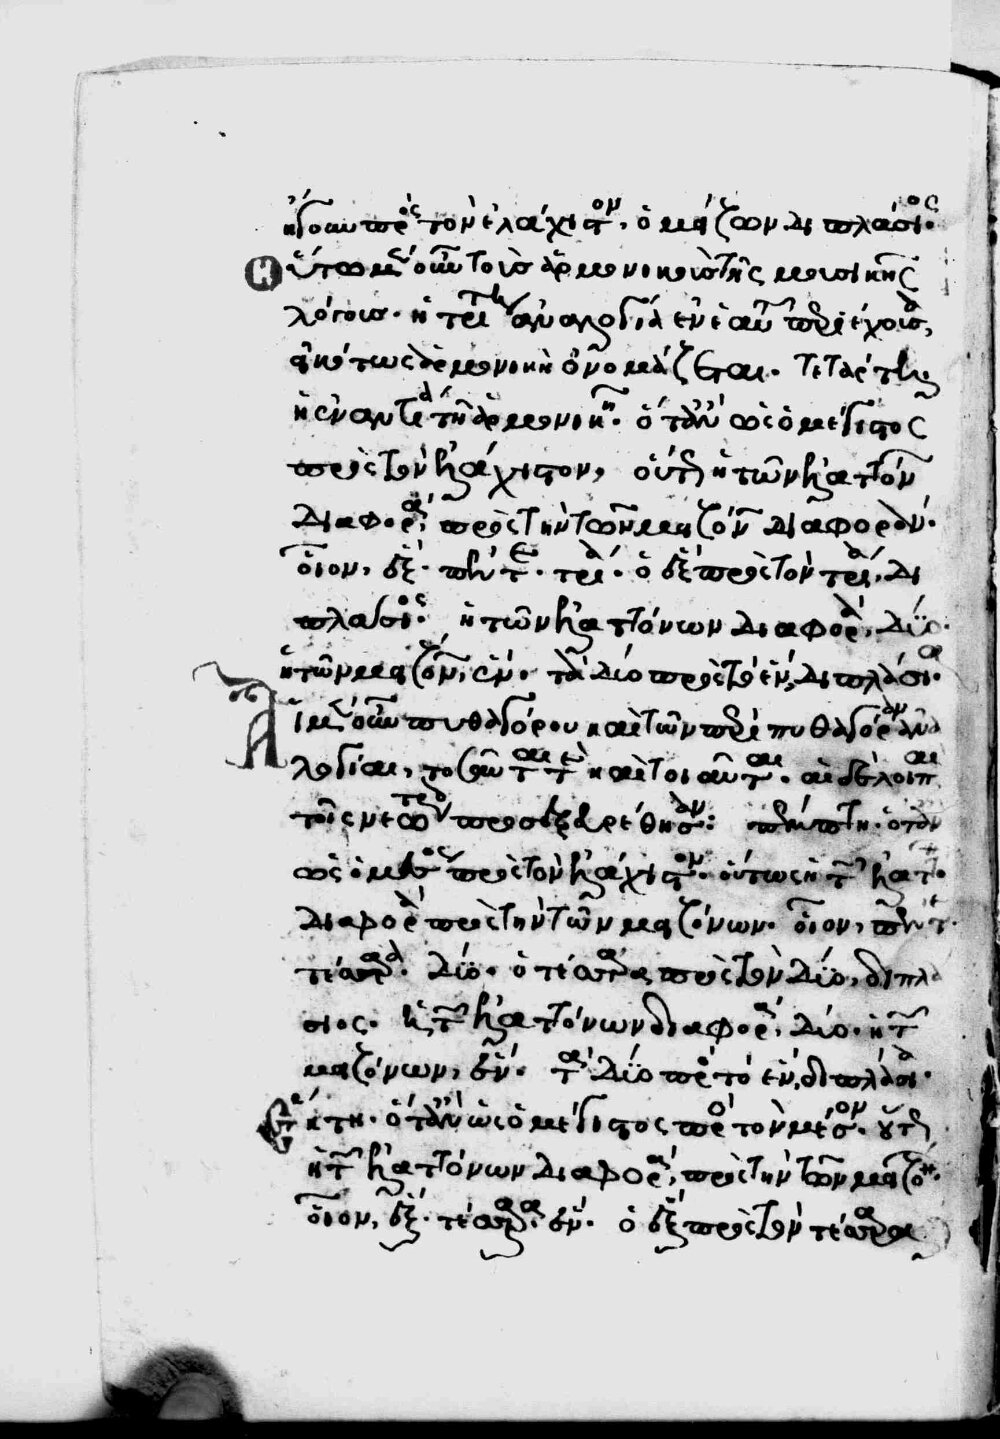 ἤγουν πρὸς τὸν ἐλάχιστον, ὁ μείζων διπλάσιος·
οὕτω μὲν οὖν τοῖς ἁρμονικοῖς τῆς μουσικῆς
λόγοις· ἡ τρίτη ἀναλογία ἐν ἑαυτῇ περιέχουσα,
εἰκότως ἁρμονικὴ ὀνομάζεται· τετάρτη
ἡ ἐναντία τῇ ἁρμονικῇ· ὅταν ὡς ὁ μέγιστος
πρὸς τὸν ἐλάχιστον, οὕτως ἡ τῶν ἐλαττόνων
διαφορά, πρὸς τὴν τῶν μειζόνων διαφοράν·
οἷον, ἕξ· πέντε· τρία· ὁ ἓξ πρὸς τὸν τρία, δι
πλάσιος· ἡ τῶν ἐλαττόνων διαφορά, δύο·
ἡ τῶν μειζόνων, ἕν· τὰ δύο πρὸς τὸ ἕν, διπλάσια·
Αἱ μὲν οὖν πυθαγόρου καὶ τῶν περὶ πυθαγόραν ἀνα
λογίαι, τοσαῦται τε καὶ τοιαῦται· αἱ δὲ λοιπαὶ
τοῖς νεωτέροις προσεξευρέθησαν: πέμπτη· ὅταν
ὡς ὁ μέσος πρὸς τὸν ἐλάχιστον· οὕτως ἡ τῶν ἐλαττό
διαφορὰ πρὸς τὴν τῶν μειζόνων· οἷον, πέντε·
τέσσαρα· δύο· ὁ τέσσαρα πρὸς τὸν δύο, διπλά
σιος· ἡ τῶν ἐλαττόνων διαφορά, δύο· ἡ τῶν
μειζόνων, ἕν· τὰ δύο πρὸς τὸ ἕν, διπλάσια·
ἕκτη· ὅταν ὡς ὁ μέγιστος πρὸς τὸν μέσον· οὕτως
ἡ τῶν ἐλαττόνων διαφορά, πρὸς τὴν τῶν μειζόνων·
οἷον, ἕξ· τέσσαρα· ἕν· ὁ ἓξ πρὸς τὸν τέσσαρα